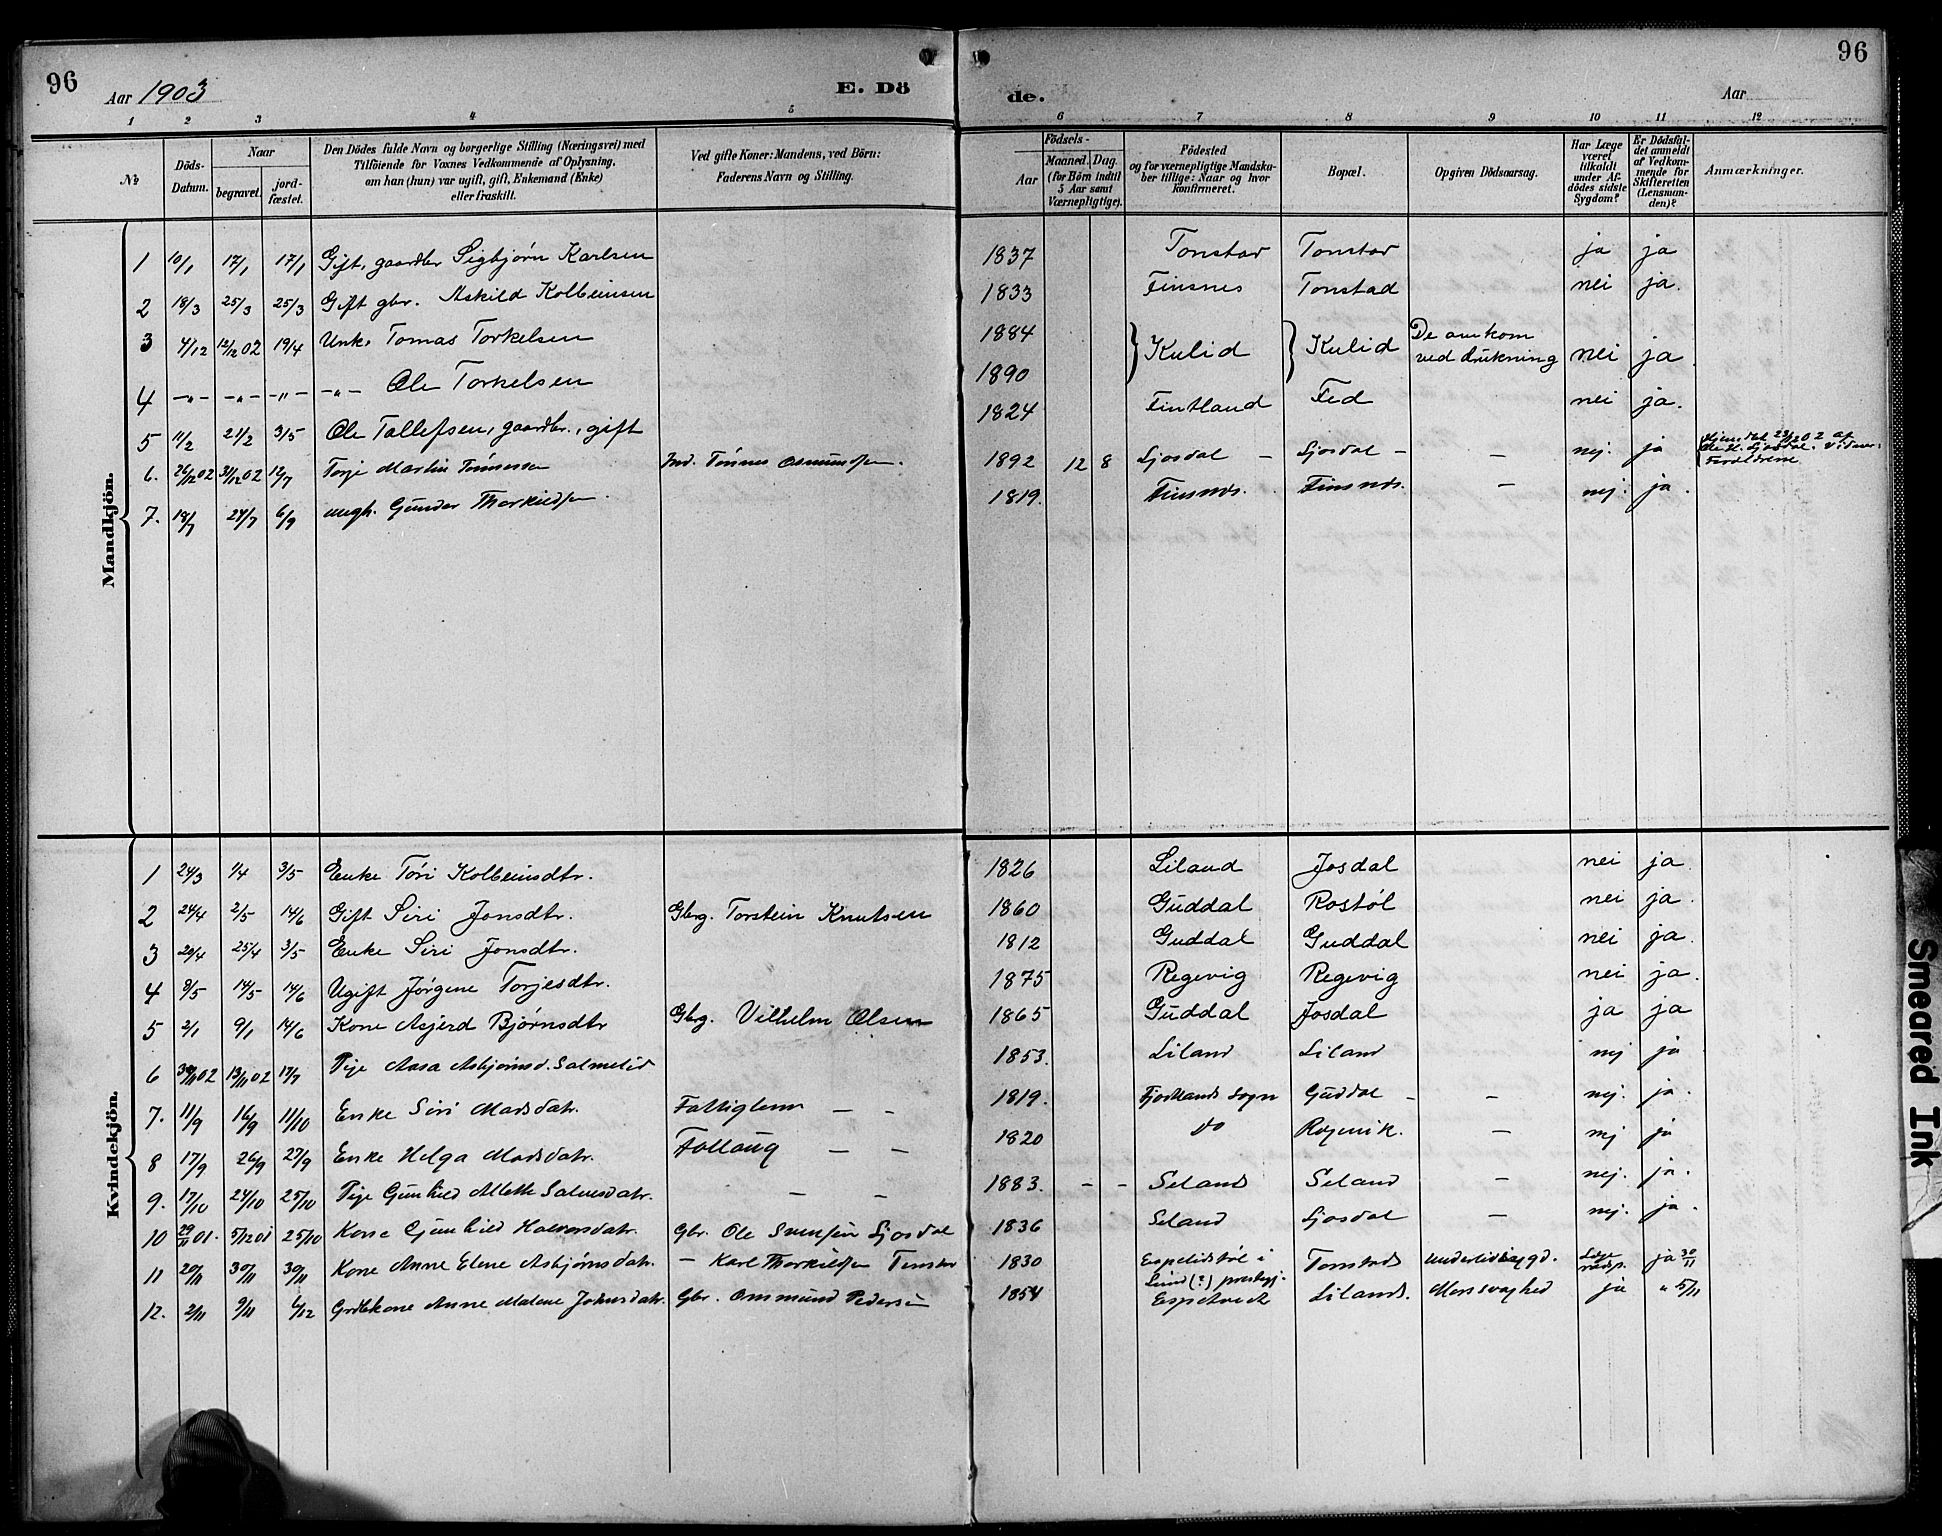 96
Aar 1903
E. Dö
de.
Aar
96
1 2 3 4 5 6 7 8 9 10 11 12
№
Döds-Datum.
Naar
begravet.
jord-fæstet.
Den Dödes fulde Navn og borgerlige Stilling (Næringsvei) med
Tilföiende for Voxnes Vedkommende af Oplysning,
om han (hun) var ugift, gift, Enkemand (Enke)
eller fraskilt.
Ved gifte Koner: Mandens, ved Börn:
Faderens Navn og Stilling.
Födsels-
Aar
Maaned. Dag.
(for Börn indtil
5 Aar samt
Værnepligtige).
Födested
og for værnepligtige Mandska-
ber tillige: Naar og hvor
konfirmeret.
Bopæl.
Opgiven Dödsaarsag.
Har Læge
været
tilkaldt
under Af-
dödes sidste
Sygdom?
Er Dödsfal-
det anmeldt
af Vedkom-
mende for
Skifteretten
(Lensman-
den)?
Anmærkninger.
Mandkjön.
1 10/1 17/1 17/1 Gift, gaardbr Sigbjørn Karlsen 1837 Tonstad Tonstad ja ja
2 18/3 25/3 25/3 Gift gbr. Askild Kolbeinsen 1833 Finsnes Tonstad nei ja.
3 4/12 12/12 02 19/4 Unk. Tomas Torkelsen 1884 Kulid Kulid De omkom ved drukning nei ja
4 -"- -"- -"- -"- Ole Torkelsen 1890
5 11/2 21/2 3/5 Ole Tallefsen, gaardbr., gift 1824 Fintland Fed nei ja.
6. 26/12 02 31/12 02 12/7 Torje Martin Tønnesen Ind. Tønnes Osmundsen. 1892 12 8 Ljosdal - Ljosdal - - nej. ja
7. 18/7 24/7 6/9 ungk. Gunder Thorkildsen. 1819. Finsnes. Finsnes. - nej. ja.
Kvindekjön.
1 24/3 1/4 3/5 Enke Tóri Kolbeinsdtr. 1826 Liland Josdal nei ja
2 24/4 2/5 14/6 Gift Siri Jonsdtr. Gbrg. Torstein Knutsen 1860 Guddal Rostøl nei ja.
3 20/4 25/4 3/5 Enke Siri Jonsdtr. 1812 Guddal Guddal nei ja.
4 9/5 14/5 14/6 Ugift Jørgene Torjesdtr. 1875 Regevig Regevig nei ja.
5 2/1 9/1 14/6 Kone Asjerd Bjørnsdtr Gbrg. Vilhelm Olsen 1865 Guddal Josdal ja ja
6 13/11 02 17/7 Pige Aasa Asbjørnsd. Salmelid 1853. Liland Liland nej ja
7. 11/9 16/9 11/10 Enke Siri Madsdatr. Fattiglem - - 1819. Fjotlands Sogn Guddal - - nej. ja.
8 17/9 26/9 27/9 Enke Helga Madsdatr. Follaug - - 1820 do Regevik. - nej ja
9. 17/10 24/10 25/10 Pige Gunhild Alette Salvesdatr. - - 1883. - - Seland Seland - nej. ja.
10 29/11 01. 5/12 01 25/10 Kone Gunhild Halvorsdatr. Gbr. Ole Svendsen Ljosdal 1836 Seland Ljosdal - nej. ja.
11 20/11 30/11 30/11 Kone Anne Elene Asbjørnsdatr. - Karl Thorkildsen Tonstad 1830 Espelidstøl i Lund (?) prestegj. Tonstad Underlivssygd. ja 30/11
12. 2/11 9/11 6/12 Grdbkone Anne Malene Johnsdatr. Gbr. Ommund Pedersen 1854 Liland. Marssvaghed ja " 5/11
Smeared Ink